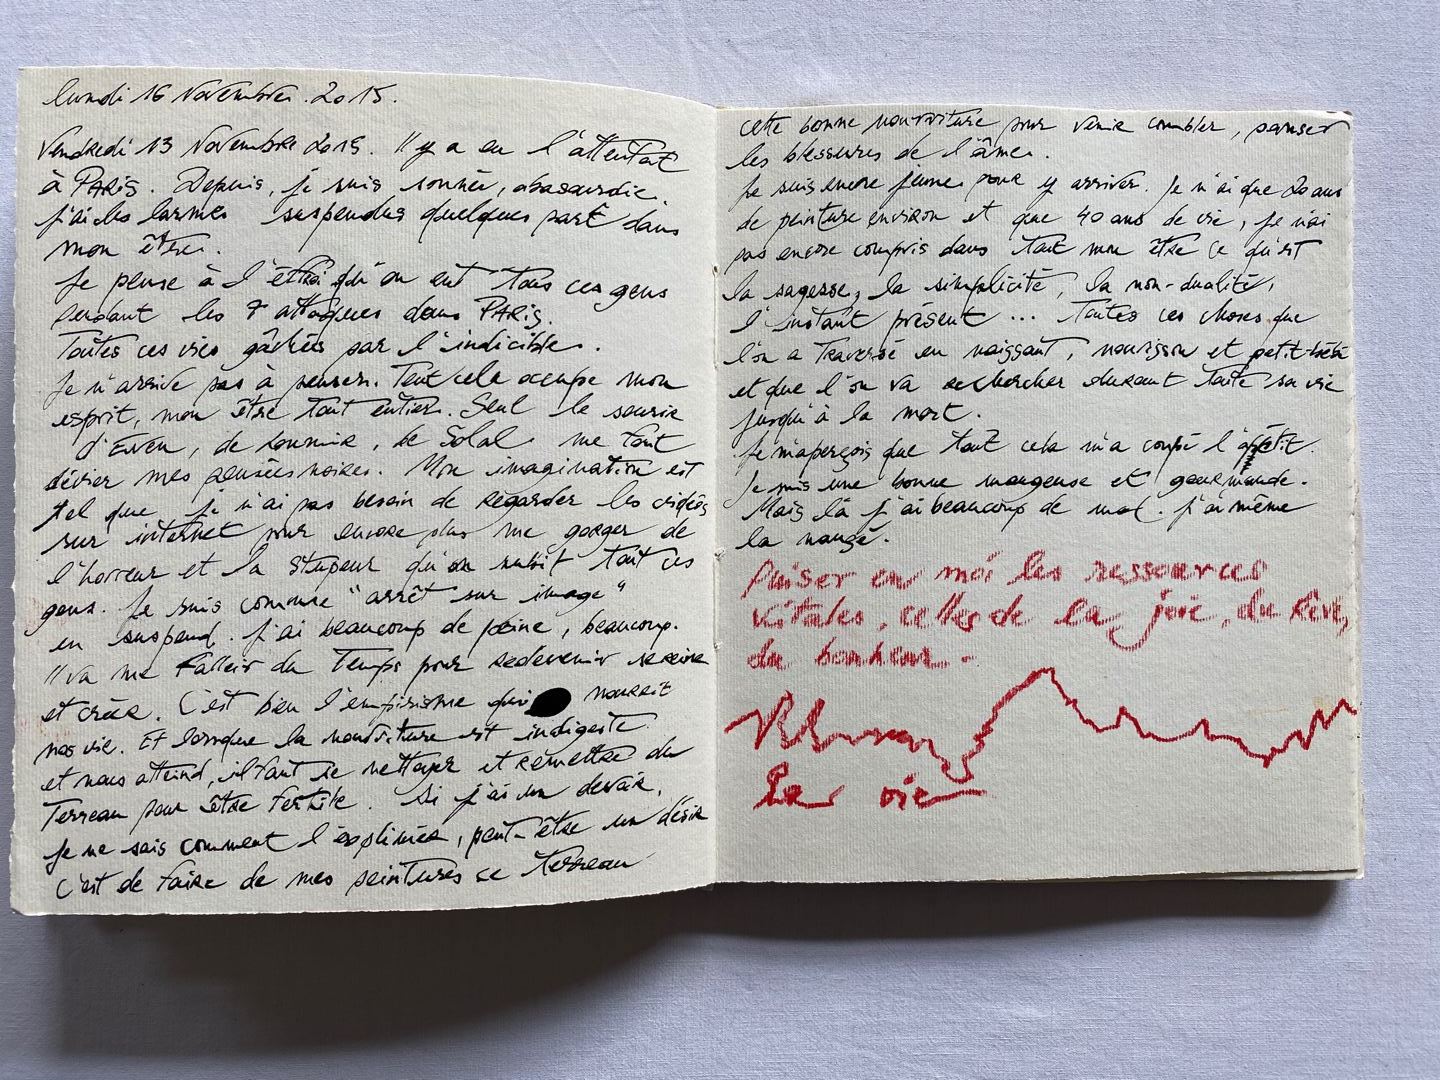 lundi 16 Novembre. 2015.
Vendredi 13 Novembre 2015. Il y a eu l'attentat
à PARIS. Depuis, je suis sonnée, abasourdie.
j'ai les larmes suspendues quelques part dans
mon être.
Je pense à l'effroi qu'on eut tous ces gens
pendant les 7 attaques dans PARIS.
Toutes ces vies gâchées par l'indicible.
Je n'arrive pas à penser. Tout cela occupe mon
esprit, mon être tout entier. Seul le sourire
d'Ewen, de, de Solal me font
dévier mes pensées noires. Mon imagination est
tel que je n'ai pas besoin de regarder les vidéos
sur internet pour encore plus me gorger de
l'horreur et la stupeur qu'on subit tout ces
gens. Je suis comme "arrêt sur image"
en suspend. J'ai beaucoup de peine, beaucoup.
Il va me falloir du temps pour redevenir sereine
et créer. C'est bien l'empirisme qui nourrit
nos vie. Et lorsque la nourriture est indigeste
et nous atteind, il faut se nettoyer et remettre du
Terreau pour être fertile. Si j'ai un devoir,
je ne sais comment l'exprimer, peut-être un désir
C'est de faire de mes peintures ce terreau
cette bonne nourriture pour venir combler, panser
les blessures de l'âme.
Je suis encore jeune pour y arriver. Je n'ai que 20 ans
de peinture environ et que 40 ans de vie, je n'ai
pas encore compris dans tout mon être ce qu'est
la sagesse, la simplicité, la non-dualité,
l'instant présent... Toutes ces choses que
l'on a traversé en naissant, nourisson et petit-bébé
et que l'on va rechercher durant toute sa vie
jusqu'à la mort.
Je m'aperçois que tout cela m'a coupé l'appétit.
Je suis une bonne mangeuse et gourmande.
Mais là j'ai beaucoup de mal. J'ai même
la nausé.
Puiser en moi les ressources
vitales, celles de la joie, du Rêve,
du bonheur.
La vie